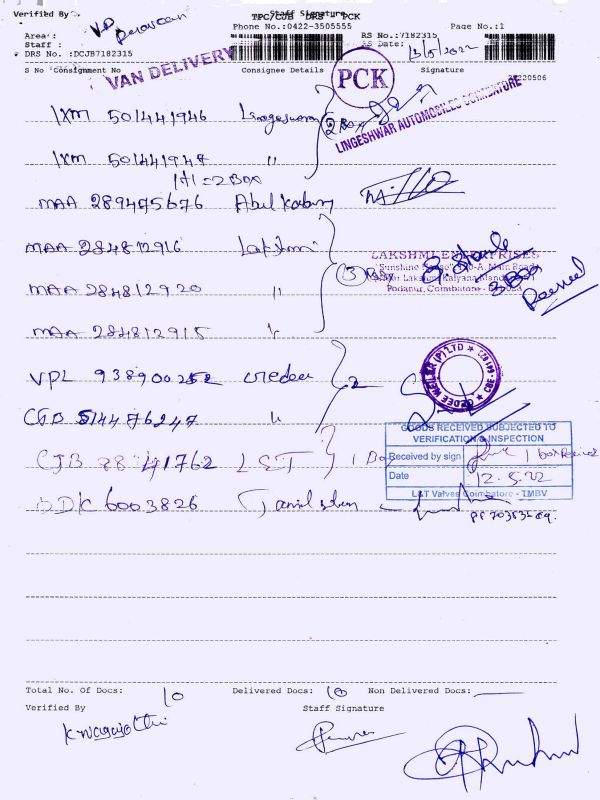 Verified By
Staff Signature
TPC/CJB DRS PCK
Phone No.:0422-3505555
Page No.:1
Area :
Staff :
DRS No. :DCJB7182315
RS No.:7182315
Date: 13/5/2022
VAN DELIVERY
PCK
S No Consignment No
Consignee Details
Signature
20220506
LINGESHWAR AUTOMOBILES COIMBATORE
IXM 501441946 Lingeswara
2 Box
IXM 501441947 "
1+1=2 Box
MAA 289475676
MAA 284812916 Lakshmi
3 Box
LAKSHMI ENTERPRISES
Podanur, Coimbatore
3 Box
Received
MAA 284812920 "
MAA 284812915 "
VPL 938900252
2
CJB 514476247 "
CJB 28741762 L&T
1 Box
GOODS RECEIVED SUBJECTED TO
VERIFICATION & INSPECTION
Received by sign
1 box Received
Date 12.5.22
L&T Valves Coimbatore - TMBV
DDK 6003826
Total No. Of Docs: 10
Delivered Docs: 10
Non Delivered Docs:
Verified By
Staff Signature